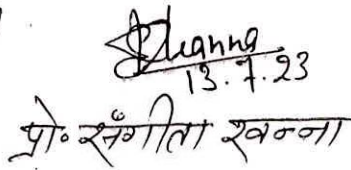 SKhanna
13.7.23
प्रो॰ सँगीता खन्ना